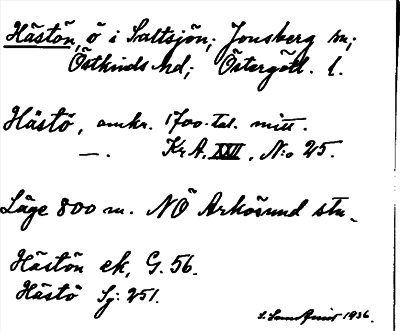 Hästön, ö i Saltsjön; Jonsberg sn;
Östkinds hd; Östergötl. l.
Hästö, omkr. 1700-tal. mitt.
—. Kr A. XXVI, N:o 25.
Läge 800 m. NÖ Arkösund stn.
Hästön ek, G. 56.
Hästö Sj: 251.
1936.